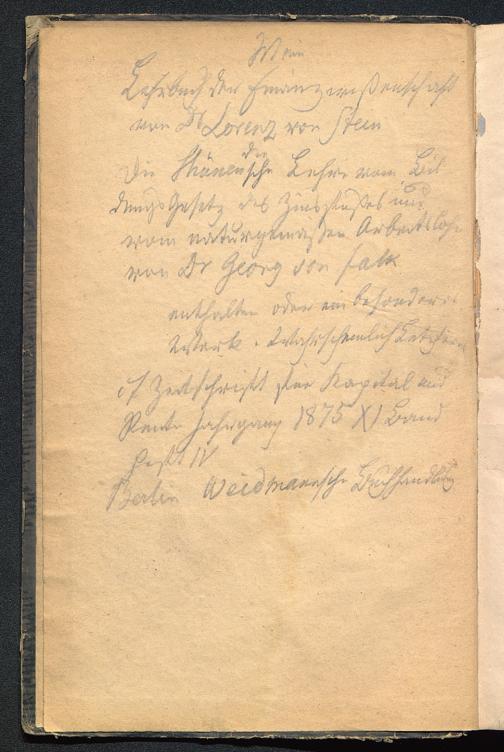 Wein
Lehrbuch der Finanzwißenschaft
von Dr Lorenz von Stein
die
Die Thünensche Lehre vom Bil
dungsGesetz des Zinsfußes und
vom naturgemäßen Arbeitslohn
von Dr Georg von Falk
enthalten oder ein besonderes
Werk. Wahrscheinlich Letzteres
cf Zeitschrift für Kapital und
Rente Jahrgang 1875 XI Band
Heft IV
Berlin Weidmannsche Buchhandlung